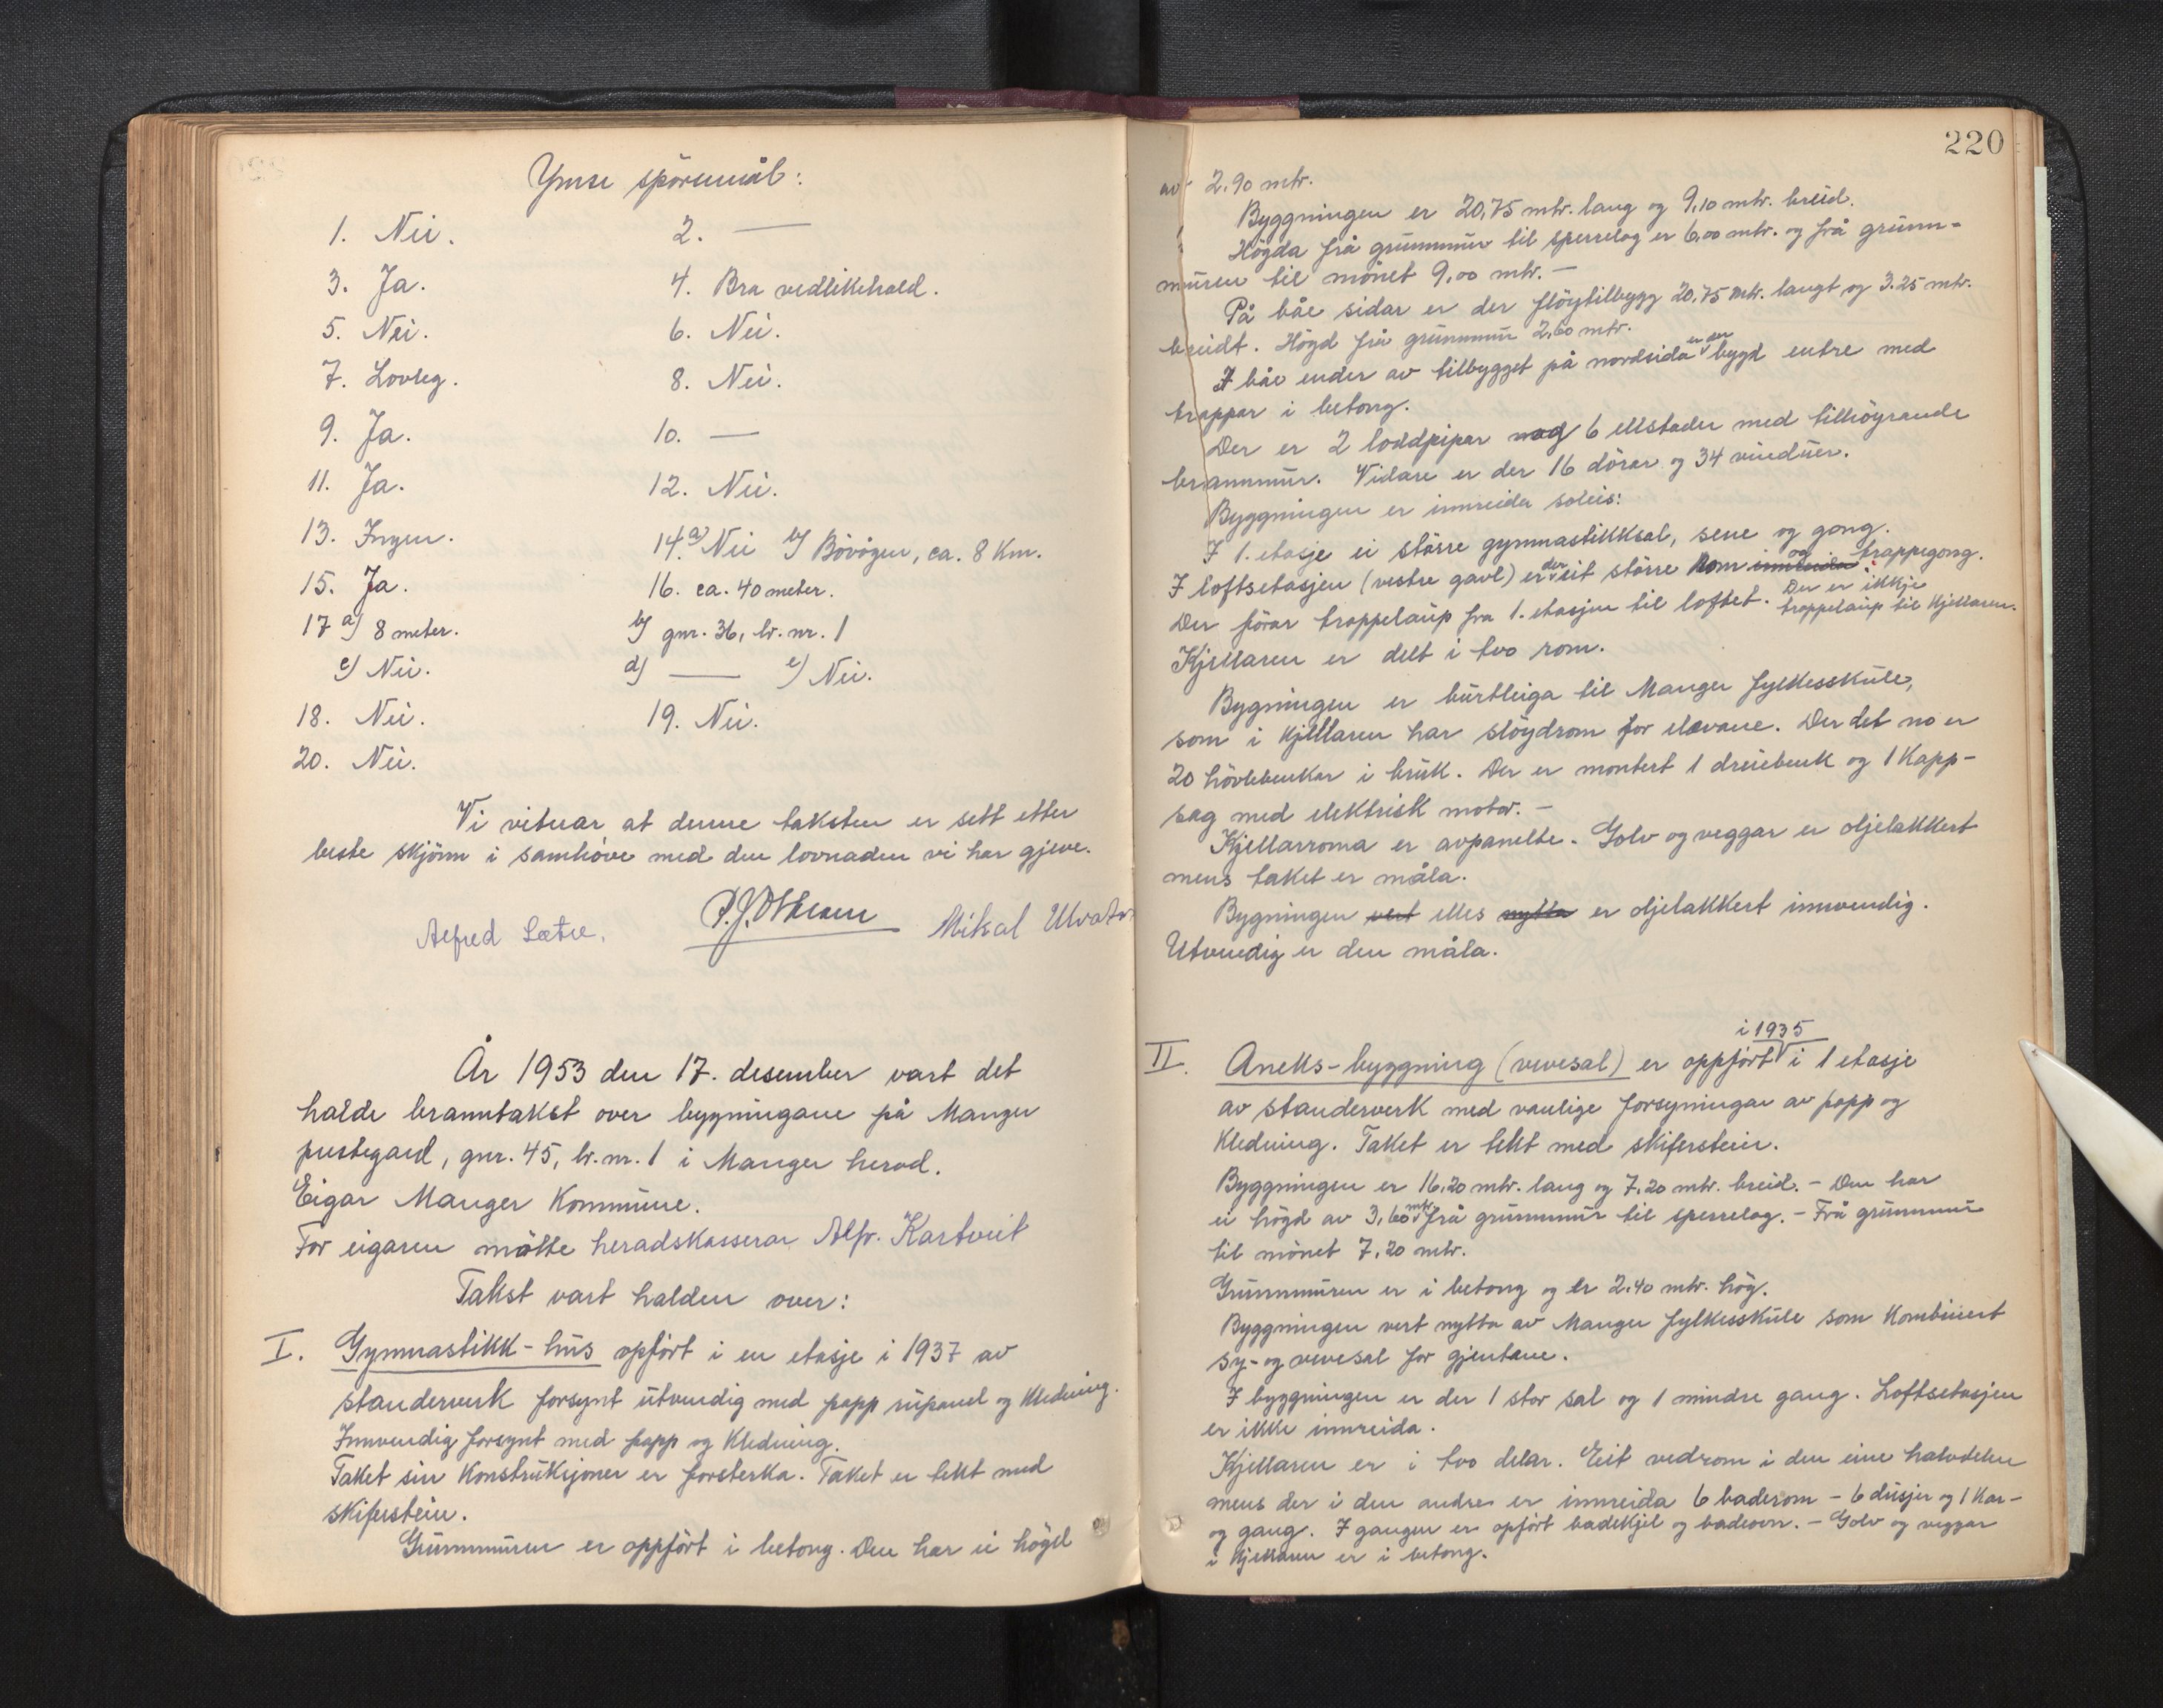 Ymse spörsmål:
1. Nei. 2. —
3. Ja. 4. Bra vedlikehald.
5. Nei. 6. Nei.
7. Lovleg. 8. Nei.
9. Ja. 10. —
11. Ja. 12. Nei.
13. Ingen. 14. a) Nei b) Bövågen, ca. 8 Km.
15. Ja. 16. ca. 40 meter.
17 a) 8 meter. b) gnr. 36, br. nr. 1
c) Nei. d) — e) Nei.
18. Nei. 19. Nei.
20. Nei.
Vi vitnar at denne taksten er sett etter
beste skjönn i samhöve med den lovnaden vi har gjeve.
Alfred Sætre. Mikal
År 1953 den 17. desember vart det
halde branntakst over bygningane på Manger
prestegard, gnr. 45, br. nr. 1 i Manger herad.
Eigar Manger Kommune.
For eigaren mötte heradskasserar Alfr. Kartveit
Takst vart halden over:
I. Gymnastikk-hus opfört i en etasje i 1937 av
standerverk forsynt utvendig med papp rupanel og Kledning.
Innvendig forsynt med papp og Kledning.
Taket sin Konstruksjoner er forsterka. Taket er tekt med
skiferstein.
Grunnmuren er oppfört i betong. Den har ei högd
220
av 2.90 mtr.
Byggningen er 20,75 mtr. lang og 9,10 mtr. breid.
Högda frå grunnmur til sperrelag er 6,00 mtr. og frå grunn-
muren til mönet 9,00 mtr. —
På båe sidar er der flöytilbygg 20,75 mtr. langt og 3.25 mtr.
breidt. Högd frå grunnmur 2,60 mtr.
I båe ender av tilbygget på nordsida er der bygd entre med
trappar i betong.
Der er 2 loddpipar og 6 ellstader med tilhöyrande
brannmur. Vidare er der 16 dörar og 34 vinduer.
Byggningen er innreida soleis:
I 1. etasje ei större gymnastikksal, sene og gong.
I loftsetasjen (vestre gavl) er der eit större Rom innreida og trappegong.
Der förar trappelaup fra 1. etasjen til loftet. Der er ikkje
trappelaup til Kjellaren.
Kjellaren er delt i tvo rom.
Bygningen er burtleiga til Manger fylkesskule,
som i Kjellaren har slöydrom for elevane. Der det no er
20 hövlebenkar i bruk. Der er montert 1 dreiebenk og 1 Kapp-
sag med elektrisk motor. —
Kjellarroma er avpanelte. Golv og veggar er oljelakkert
mens taket er måla.
Bygningen vert elles nytta er oljelakkert innvendig.
Utvendig er den måla.
II. Aneks-byggning (vevesal) er oppfört i 1935 i 1 etasje
av standerverk med vanlige forsyningar av papp og
Kledning. Taket er tekt med skiferstein.
Byggningen er 16,20 mtr. lang og 7,20 mtr. breid. — Den har
ei högd av 3,60 mtr. frå grunnmur til sperrelag. — Frå grunnmur
til mönet 7,20 mtr.
Grunnmuren er i betong og er 2.40 mtr. hög.
Byggningen vert nytta av Manger fylkesskule som Kombinert
sy- og vevesal for gjentane.
I byggningen er der 1 stor sal og 1 mindre gang. Loftsetasjen
er ikke innreida.
Kjellaren er i tvo delar. Eit vedrom i den eine halvdelen
mens der i den andre er innreida 6 baderom — 6 dusjer og 1 Kar —
og gang. I gangen er opfört badekjel og badeovn. — Golv og veggar
i Kjellaren er i betong.